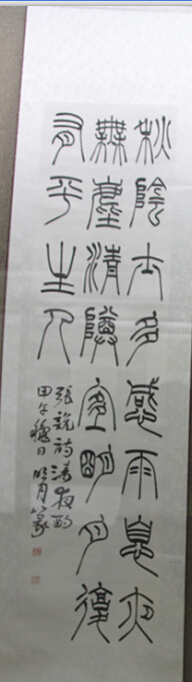 秋陰士多感雨息夜
無塵清樽宜明月復
有平生人
張說詩清夜酌
甲午穐日明月篆